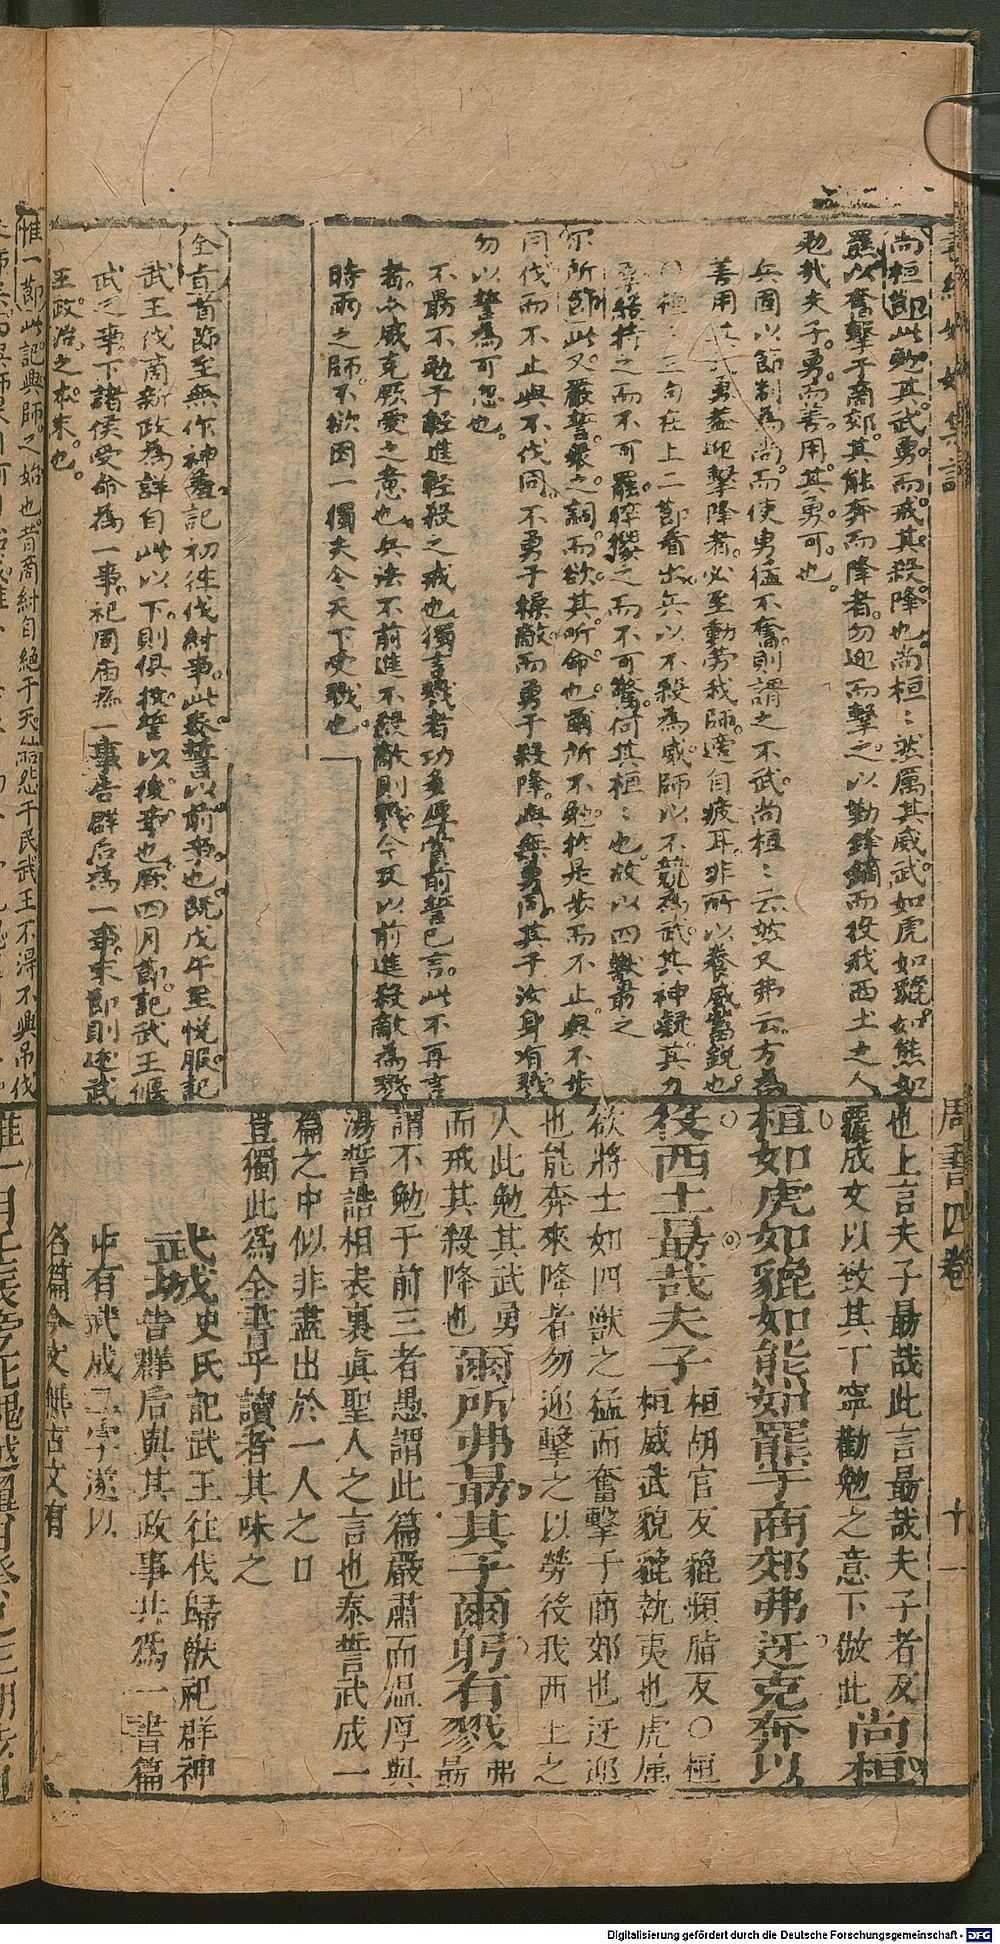 尚桓節此勉其武勇而戒其殺降也尚桓〻然厲其威武如虎如貔如熊如
羆以奮擊于商郊其能奔而降者勿迎而擊之以勤鋒鏑而役我西土之人
勉哉夫子勇而善用其勇可也
兵固以節制為尚而使勇猛不奮則謂之不武尚桓〻云然又弗云方為
善用其勇蓋迎擊降者必至動勞我師適自疲耳非所以養威蓄銳也
○桓〻三句在上二節看出兵以不殺為威師以不競為武其神凝其力
爾所節此又嚴誓眾之詞而欲其聽命也爾所不勉於是步而不止與不步
同伐而不止與不伐同不勇于操敵而勇于殺降與無勇同其于汝身有戮
勿以誓為可忽也
不勗不勉于輕進輕殺之戒也獨言戮者功多厚賞前誓已言此不再言
者亦威克厥愛之意也兵法不前進不殺敵則戮今反以前進殺敵為戮
時雨之師不欲因一獨夫令天下受戮也
全旨首節至無作神羞記初往伐紂事此泰誓以前事也既戊午至悅服記
武王伐商新政為詳自此以下則俱牧誓以後事也厥四月節記武王偃
武之事下諸侯受命為一事祀周廟為一事告群后為一事末節則述武
王政治之本末也
惟一節此記興師之始也昔商紂自絕于天結怨于民武王不得不興弔伐
周書四卷 十一
也上言夫子勗哉此言勗哉夫子者反
覆成文以致其丁寧勸勉之意下倣此尚桓
桓如虎如貔如熊如羆于商郊弗迓克奔以
役西土勗哉夫子桓胡官反貔頻脂反○桓
桓威武貌貔執夷也虎属
欲將士如四獸之猛而奮擊于商郊也迓迎
也能奔來降者勿迎擊之以勞役我西土之
人此勉其武勇
而戒其殺降也爾所弗勗其于爾躬有戮弗勗
謂不勉于前三者愚謂此篇嚴肅而溫厚與
湯誓誥相表裏真聖人之言也泰誓武成一
篇之中似非盡出於一人之口
豈獨此為全書乎讀者其味之
武成史氏記武王往伐歸獸祀群神
告群后與其政事共為一書篇
中有武成二字遂以
名篇今文無古文有
惟一月壬辰旁死魄越翼日癸巳王朝步自
Digitalisierung gefördert durch die Deutsche Forschungsgemeinschaft - DFG